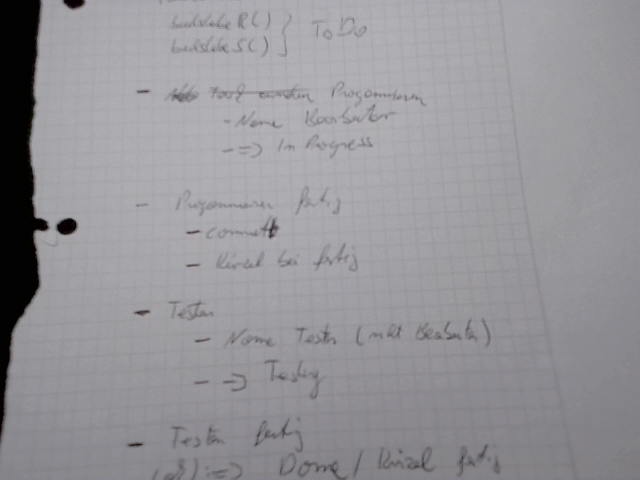 buchstabe R() } ToDo
buchstabe S()
- Programmieren
- Name Bearbeiter
- => In Progress
- Programmieren fertig
- commit
- Kürzel bei fertig
- Testen
- Name Tester (nicht Bearbeiter)
- => Testing
- Testen fertig
=> Done / Kürzel fertig